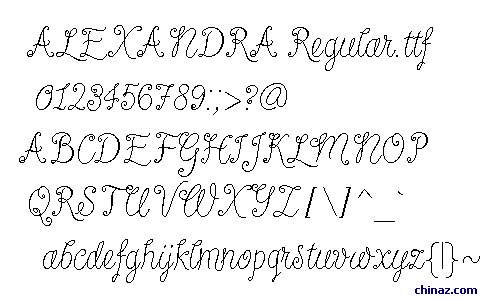 ALEXANDRA Regular.ttf
0123456789:;>?@
ABCDEFGHIJKLMNOP
QRSTUVWXYZ[\]^_`
abcdefghijklmnopqrstuvwxyz{|}~
chinaz.com